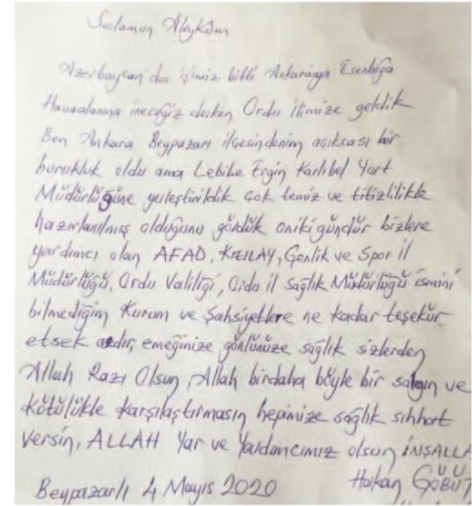 Selamun Aleyküm
Azerbaycan'da işimiz bitti Ankaraya Esenboğa
Havaalanına ineceğiz derken Ordu ilimize geldik
Ben Ankara Beypazarı ilçesindenim açıkcası bir
burukluk oldu ama Lebibe Ergin Karlıbel Yurt
Müdürlüğüne yerleştirildik çok temiz ve titizlilikle
hazırlanılmış olduğunu gördük oniki gündür bizlere
yardımcı olan AFAD, KIZILAY, Gençlik ve Spor il
Müdürlüğü, Ordu Valiliği, Ordu il Sağlık Müdürlüğü ismini
bilmediğim Kurum ve Şahsiyetlere ne kadar teşekür
etsek azdır, emeğinize gönlünüze sağlık sizlerden
Allah Razı Olsun, Allah birdaha böyle bir salgın ve
kötülükle karşılaştırmasın hepimize sağlık sıhhat
versin, ALLAH Yar ve Yardımcımız olsun İNŞALLA
Beypazarlı 4 Mayıs 2020 Hakan